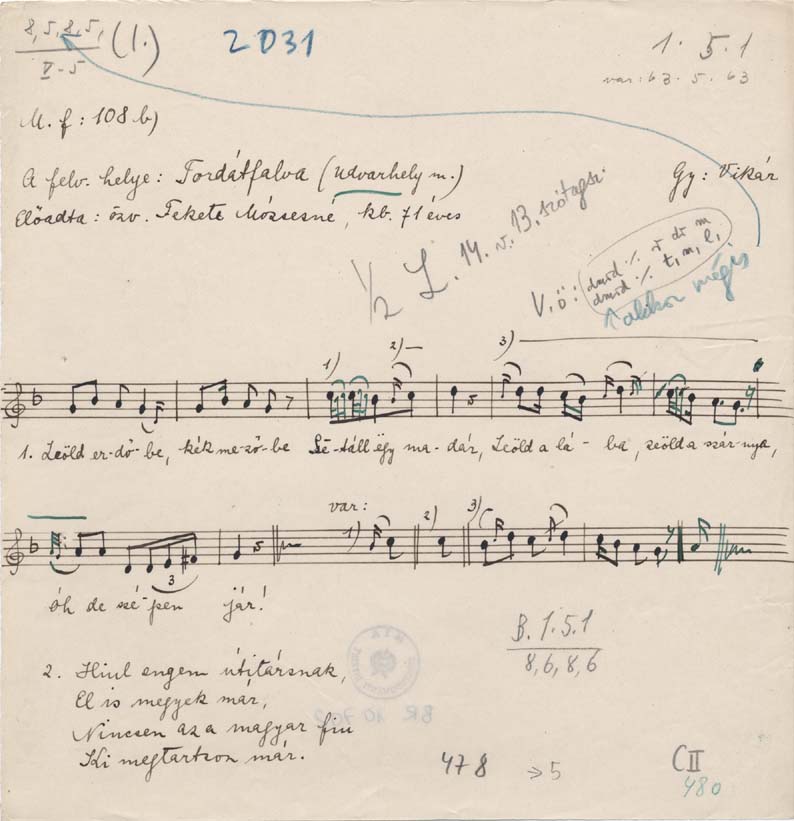 8,5,8,5,
V-5
(1.)
2031
1. 5. 1
var: b3. 5. b3
M. f: 108 b)
A felv. helye: Tordátfalva (Udvarhely m.)
Gy: Vikár
Előadta: özv. Fekete Mózsesné, kb. 71 éves
1/2 L. 14. v. 13. szótagsz.
V.ö:
takkor mégis
1) 2) 3)
1. Zeöld er-dő-be, kék me-ző-be Sé-táll egy ma-dár, Zeöld a lá-ba, zeöld a szár-nya,
var: 1) 2) 3)
3
óh de szé-pen jár!
B. 1. 5. 1
8,6,8,6
2. Hiul engem útitársnak,
El is megyek már,
Nincsen az a magyar fiu
Ki megtartson már.
BR 10
478 → 5
CII
480